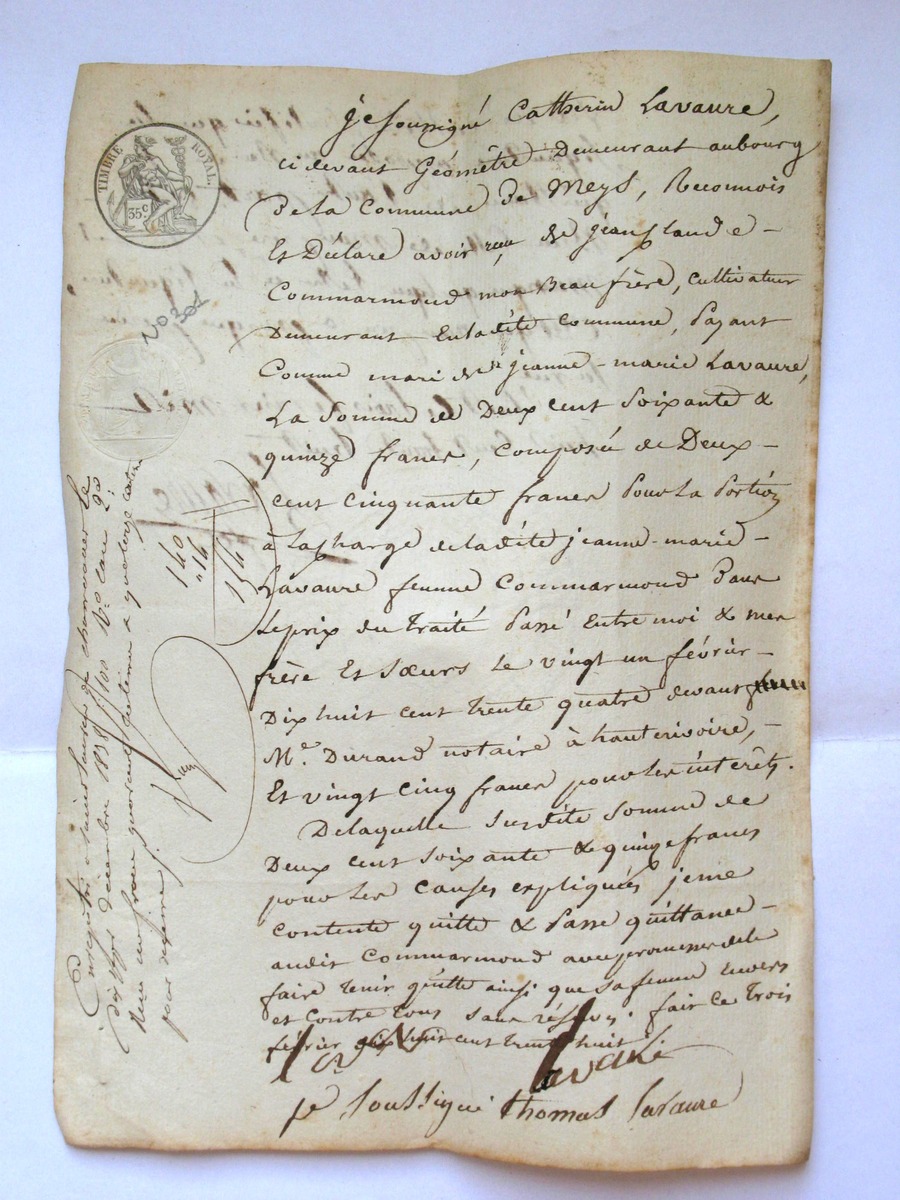 TIMBRE ROYAL.
35 c
No 301
je soussigné Catherin Lavaure,
ci devant Géomètre Demeurant au bourg
De la Commune De Meys, Reconnois
Et Déclare avoir reçu de jean Claude
Commarmond mon Beau frère, cultivateur
Demeurant En la dite Commune, Payant
Comme mari de jeanne-marie Lavaure,
La Somme de Deux cent Soixante &
quinze francs, Composée de Deux
cent Cinquante francs Pour La Portion
à La Charge de la dite jeanne-marie
Lavaure femme Commarmond Dans
Le prix du Traité Passé Entre moi & mes
frère Et Sœurs Le vingt un février
Dix huit cent Trente quatre devant
Me. Durand notaire à hauterivoire,
Et vingt Cinq francs pour les intérêts.
De laquelle Susdite Somme de
Deux cent Soixante & quinze francs
pour les Causes expliquées je me
Contente quitte & Passe quittance
audit Commarmond avec promesse de le
faire Tenir quitte ainsi que sa femme Envers
et Contre Tous Sans réserve. fait ce Trois
février dix huit cent trente huit
Lavaure
je soussigné thomas Lavaure
140
14
154
Enregistré à
décembre 1838 100
pour